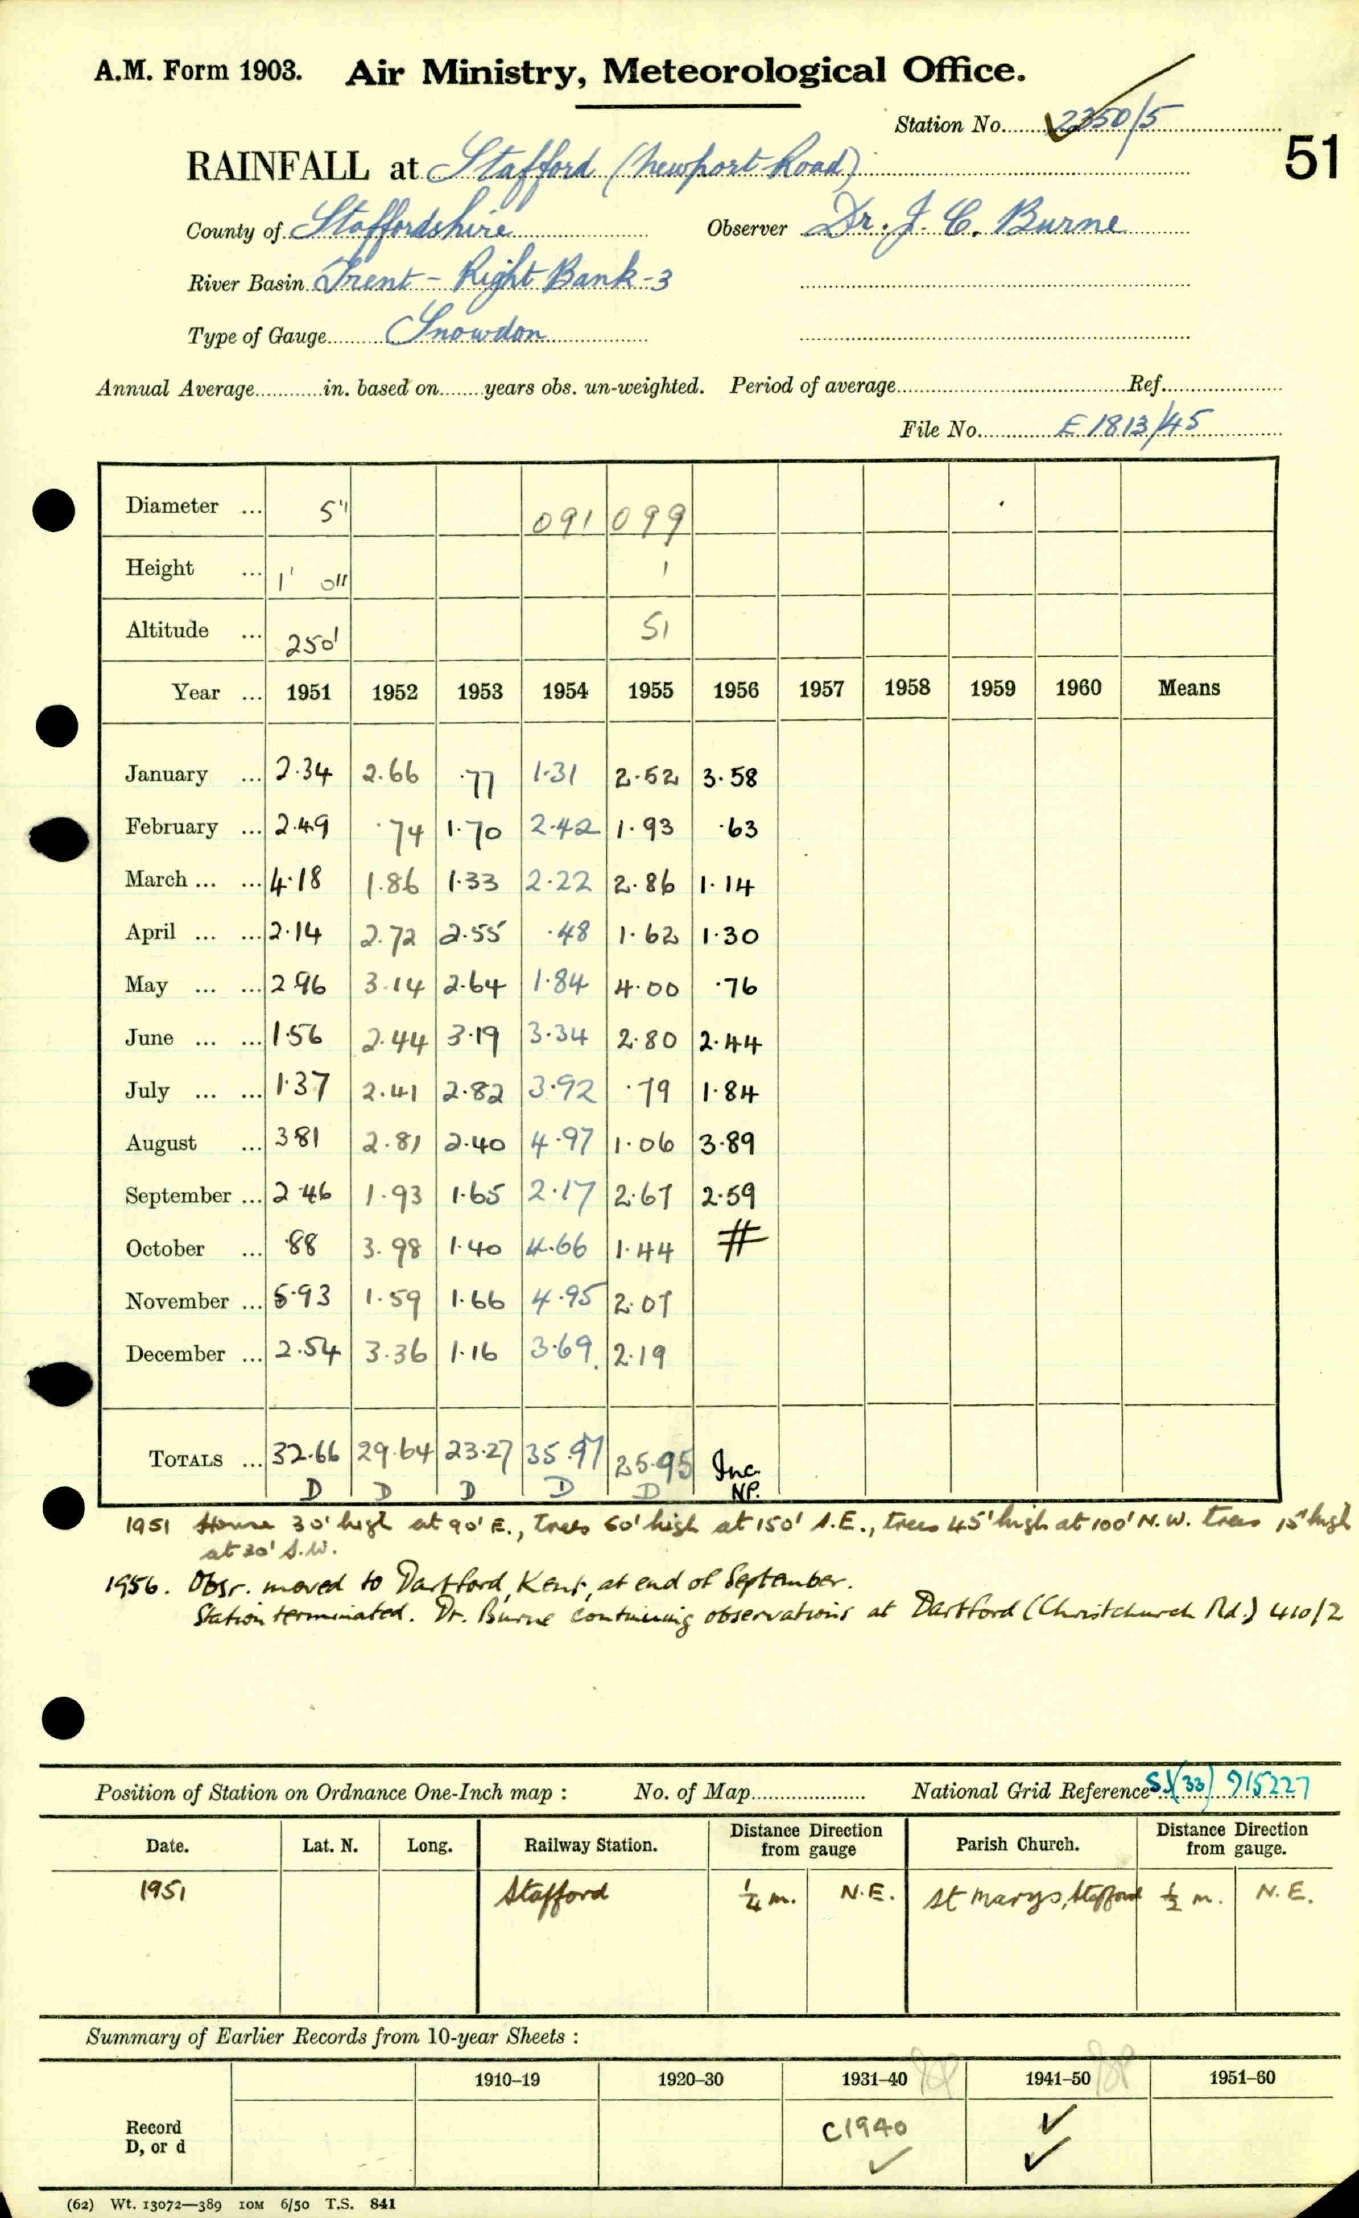 A.M. Form 1903. Air Ministry, Meteorological Office.
Station No. 2350/5
51
RAINFALL at Stafford (Newport Road)
County of Staffordshire Observer Dr. J. C. Burne
River Basin Trent - Right Bank - 3
Type of Gauge Snowdon
Annual Average in. based on years obs. un-weighted. Period of average Ref.
File No. E 1813/45
Diameter ... 5" 091 099
Height ... 1' 0" 1
Altitude ... 250' 51
Year ... 1951 1952 1953 1954 1955 1956 1957 1958 1959 1960 Means
January ... 2.34 2.66 .77 1.31 2.52 3.58
February ... 2.49 .74 1.70 2.42 1.93 .63
March ... ... 4.18 1.86 1.33 2.22 2.86 1.14
April ... ... 2.14 2.72 2.55 .48 1.62 1.30
May ... ... 2.96 3.14 2.64 1.84 4.00 .76
June ... ... 1.56 2.44 3.19 3.34 2.80 2.44
July ... ... 1.37 2.41 2.82 3.92 .79 1.84
August ... 3.81 2.81 2.40 4.97 1.06 3.89
September ... 2.46 1.93 1.65 2.17 2.67 2.59
October ... .88 3.98 1.40 4.66 1.44 #
November ... 5.93 1.59 1.66 4.95 2.07
December ... 2.54 3.36 1.16 3.69 2.19
TOTALS ... 32.66 29.64 23.27 35.97 25.95 Inc.
D D D D D NP.
1951 House 30' high at 90' E., trees 60' high at 150' S.E., trees 45' high at 100' N.W. trees 15' high
at 30' S.W.
1956. Obsr. moved to Dartford, Kent, at end of September.
Station terminated. Dr. Burne continuing observations at Dartford (Christchurch Rd.) 410/2
Position of Station on Ordnance One-Inch map : No. of Map National Grid Reference SJ(33) 915227
Date. Lat. N. Long. Railway Station. Distance from gauge Direction Parish Church. Distance from gauge. Direction
1951 Stafford ¼ m. N.E. St Marys, Stafford ½ m. N.E.
Summary of Earlier Records from 10-year Sheets :
1910–19 1920–30 1931–40 1941–50 1951–60
Record
D, or d
C1940 ✓
✓ ✓
(62) Wt. 13072—389 10M 6/50 T.S. 841